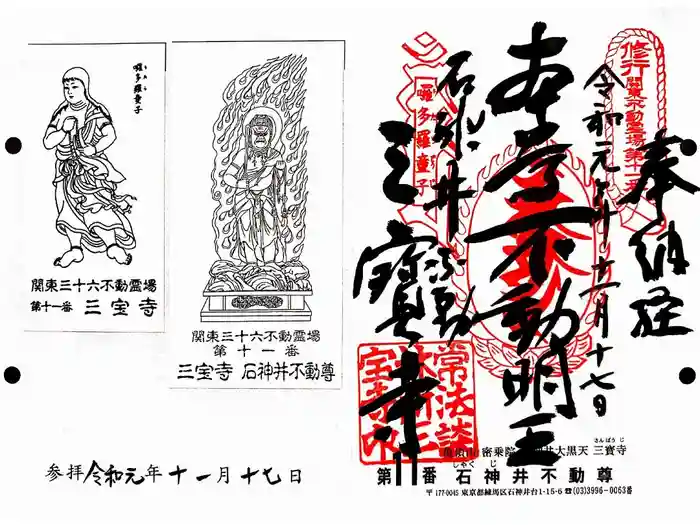 囉多羅童子
関東三十六不動霊場
第十一番 三宝寺
関東三十六不動霊場
第十一番
三宝寺 石神井不動尊
参拝 令和元年十一月十七日
奉納経
令和元年十一月十七日
本尊不動明王
石神井不動
三寳寺
修行
関東不動霊場第十一番
囉多羅童子
密乗院
大黒天 三寳寺
さんぽうじ
第11番 石神井不動尊
しゃくじ
〒177-0045 東京都練馬区石神井台1-15-6 ☎(03)3996-0063番